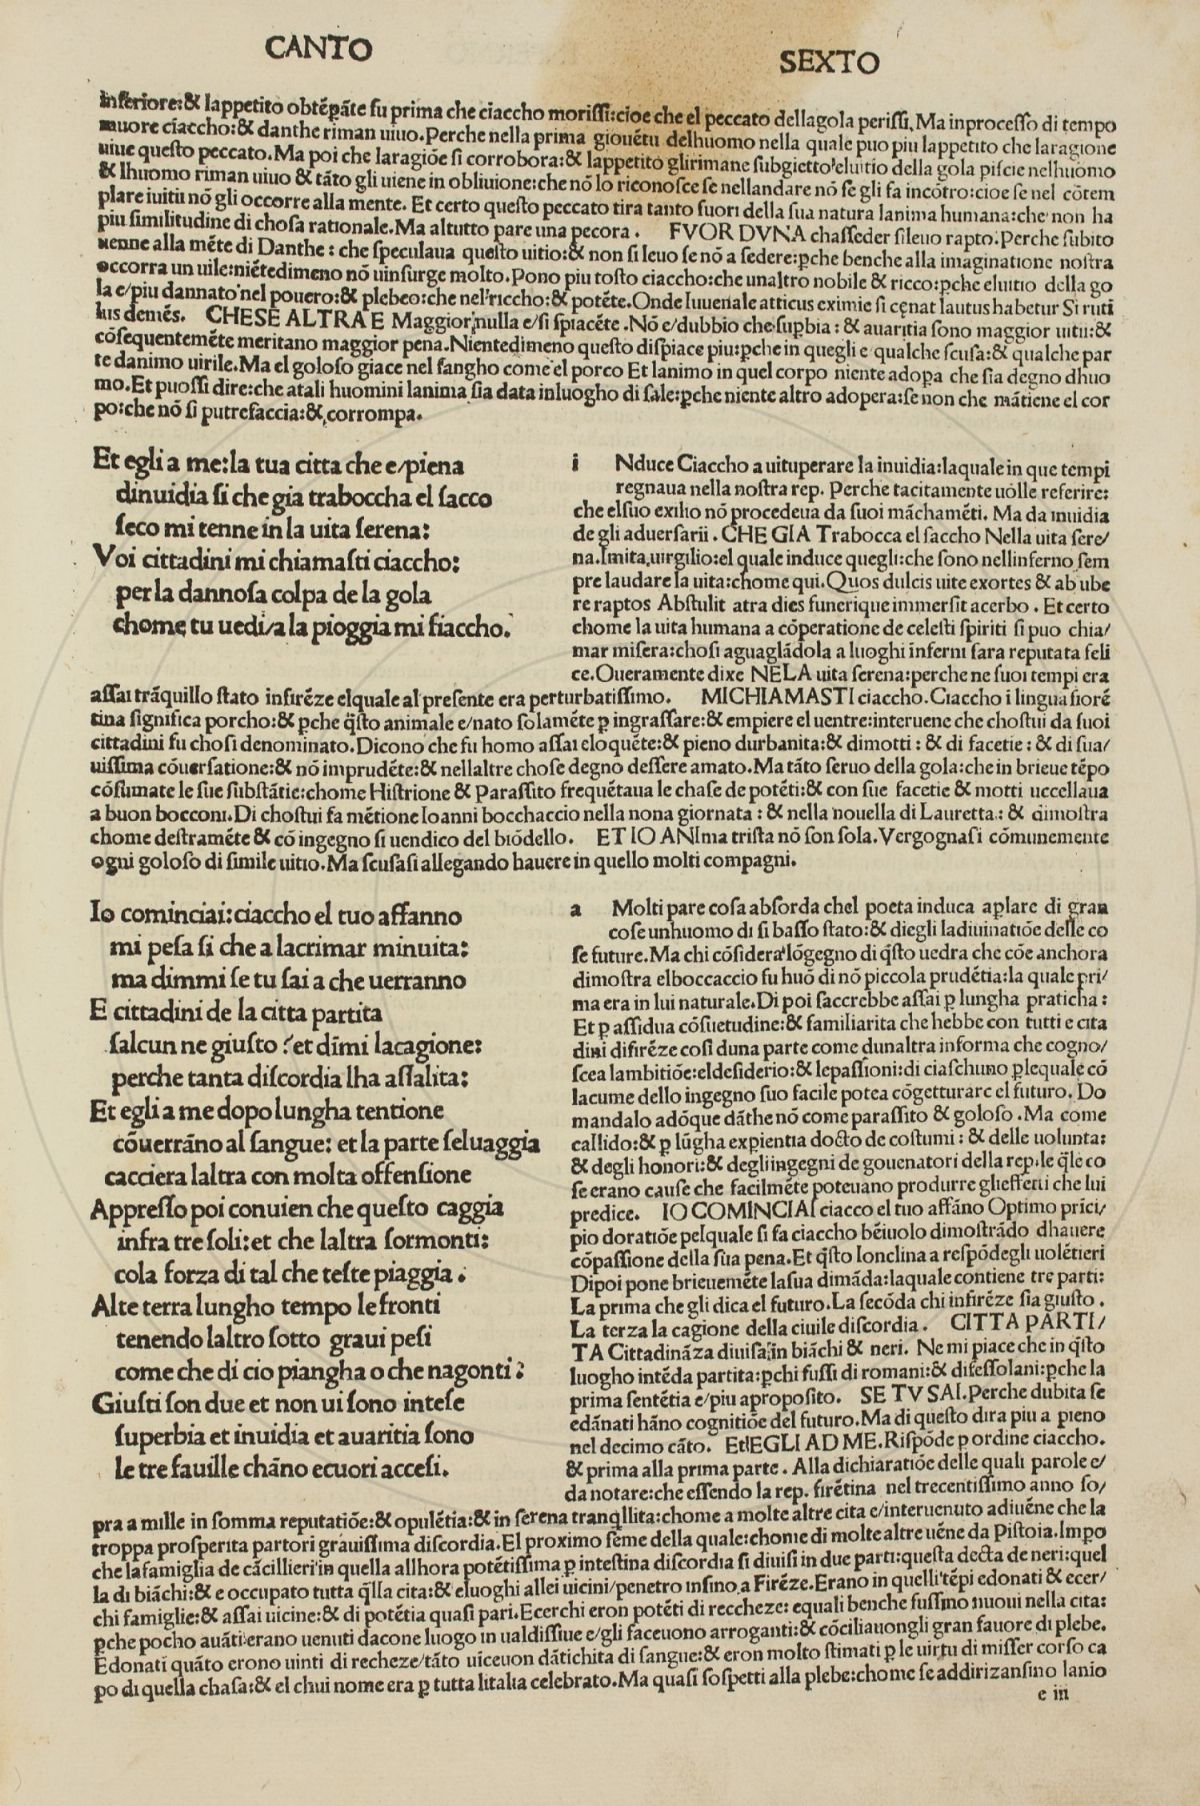 CANTO SEXTO
inferiore:& lappetito obtēpāte fu prima che ciaccho morissi:cioe che el peccato dellagola perissi. Ma inprocesso di tempo
muore ciaccho:& danthe riman uiuo.Perche nella prima giouētu delhuomo nella quale puo piu lappetito che laragione
uiue questo peccato.Ma poi che laragiōe si corrobora:& lappetito glirimane subgietto eluitio della gola piscie nelhuomo
& lhuomo riman uiuo & tāto gli uiene in obliuione:che nō lo riconosce se nellandare nō se gli fa incōtro:cioe se nel cōtem
plare iuitii nō gli occorre alla mente. Et certo questo peccato tira tanto fuori della sua natura lanima humana:che non ha
piu similitudine di chosa rationale.Ma altutto pare una pecora . FVOR DVNA chasseder sileuo rapto.Perche subito
uenne alla mēte di Danthe : che speculaua questo uitio:& non si leuo se nō a sedere:ꝑche benche alla imaginatione nostra
occorra un uile:niētedimeno nō uinsurge molto.Pono piu tosto ciaccho:che unaltro nobile & ricco:ꝑche eluitio della go
la e/piu dannato nel pouero:& plebeo:che nel riccho:& potēte.Onde Iuuenale atticus eximie si cęnat lautus habetur Si ruti
lus demēs. CHESE ALTRA E Maggior nulla e/si spiacēte .Nō e/dubbio che suꝑbia : & auaritia sono maggior uitii:&
cōsequentemēte meritano maggior pena.Nientedimeno questo dispiace piu:ꝑche in quegli e qualche scusa:& qualche par
te danimo uirile.Ma el goloso giace nel fangho come el porco Et lanimo in quel corpo niente adopa che sia degno dhuo
mo.Et puossi dire:che atali huomini lanima sia data inluogho di sale:ꝑche niente altro adopera:se non che mātiene el cor
po:che nō si putrefaccia:& corrompa.
Et egli a me:la tua citta che e/piena
dinuidia si che gia traboccha el sacco
seco mi tenne in la uita serena:
Voi cittadini mi chiamasti ciaccho:
per la dannosa colpa de la gola
chome tu uedi/a la pioggia mi fiaccho.
i Nduce Ciaccho a uituperare la inuidia:laquale in que tempi
regnaua nella nostra rep. Perche tacitamente uolle referire:
che elsuo exilio nō procedeua da suoi māchamēti. Ma da inuidia
de gli aduersarii . CHE GIA Trabocca el saccho Nella uita sere/
na.Imita uirgilio:el quale induce quegli:che sono nellinferno sem
pre laudare la uita:chome qui.Quos dulcis uite exortes & ab ube
re raptos Abstulit atra dies funerique immersit acerbo . Et certo
chome la uita humana a cōperatione de celesti spiriti si puo chia/
mar misera:chosi aguaglādola a luoghi inferni sara reputata feli
ce.Oueramente dixe NELA uita serena:perche ne suoi tempi era
assai trāquillo stato infirēze elquale al presente era perturbatissimo. MICHIAMASTI ciaccho.Ciaccho i lingua fiorē
tina significa porcho:& ꝑche q̄sto animale e/nato solamēte ꝑ ingrassare:& empiere el uentre:interuene che chostui da suoi
cittadini fu chosi denominato.Dicono che fu homo assai eloquēte:& pieno durbanita:& dimotti : & di facetie : & di sua/
uissima cōuersatione:& nō imprudēte:& nellaltre chose degno dessere amato.Ma tāto seruo della gola:che in brieue tēpo
cōsumate le sue substātie:chome Histrione & Parassito frequētaua le chase de potēti:& con sue facetie & motti uccellaua
a buon bocconi.Di chostui fa mētione Ioanni bocchaccio nella nona giornata : & nella nouella di Lauretta: & dimostra
chome destramēte & cō ingegno si uendico del biōdello. ET IO ANIma trista nō son sola.Vergognasi cōmunemente
ogni goloso di simile uitio.Ma scusasi allegando hauere in quello molti compagni.
Io cominciai:ciaccho el tuo affanno
mi pesa si che a lacrimar minuita:
ma dimmi se tu sai a che uerranno
E cittadini de la citta partita
salcun ne giusto :et dīmi lacagione:
perche tanta discordia lha assalita:
Et egli a me dopo lungha tentione
cōuerrāno al sangue: et la parte seluaggia
cacciera laltra con molta offensione
Appresso poi conuien che questo caggia
infra tre soli:et che laltra sormonti:
cola forza di tal che teste piaggia .
Alte terra lungho tempo le fronti
tenendo laltro sotto graui pesi
come che di cio piangha o che nagonti:
Giusti son due et non ui sono intese
superbia et inuidia et auaritia sono
le tre fauille chāno ecuori accesi.
a Molti pare cosa absorda chel poeta induca a ꝑlare di gran
cose unhuomo di si basso stato:& diegli ladiuinatiōe delle co
se future.Ma chi cōsidera lōgegno di q̄sto uedra che cōe anchora
dimostra elboccaccio fu huō di nō piccola prudētia:la quale pri/
ma era in lui naturale.Di poi saccrebbe assai ꝑ lungha praticha :
Et ꝑ assidua cōsuetudine:& familiarita che hebbe con tutti e cita
dini difirēze cosi duna parte come dunaltra informa che cogno/
scea lambitiōe:eldesiderio:& lepassioni:di ciaschuno ꝑlequale cō
lacume dello ingegno suo facile potea cōgetturare el futuro. Do
mandalo adōque dāthe nō come parassito & goloso .Ma come
callido:& ꝑ lūgha exꝑientia docto de costumi : & delle uolunta:
& degli honori:& degliingegni de gouenatori della rep.le q̄le co
se erano cause che facilmēte poteuano produrre glieffecti che lui
predice. IO COMINCIAI ciacco el tuo affāno Optimo prīci/
pio doratiōe pelquale si fa ciaccho bēiuolo dimostrādo dhauere
cōpassione della sua pena.Et q̄sto lonclina a respōdegli uolētieri
Dipoi pone brieuemēte lasua dimāda:laquale contiene tre parti:
La prima che gli dica el futuro.La secōda chi infirēze sia giusto .
La terza la cagione della ciuile discordia . CITTA PARTI/
TA Cittadināza diuisa in biāchi & neri. Ne mi piace che in q̄sto
luogho intēda partita:ꝑchi fussi di romani:& difessolani:ꝑche la
prima sentētia e/piu aproposito. SE TV SAI.Perche dubita se
edānati hāno cognitiōe del futuro.Ma di questo dira piu a pieno
nel decimo cāto. Et EGLI AD ME.Rispōde ꝑ ordine ciaccho.
& prima alla prima parte . Alla dichiaratiōe delle quali parole e/
da notare:che essendo la rep. firētina nel trecentissimo anno so/
pra a mille in somma reputatiōe:& opulētia:& in serena tranq̄llita:chome a molte altre cita e/interuenuto adiuēne che la
troppa prosperita partori grauissima discordia.El proximo seme della quale:chome di molte altre uēne da Pistoia.Impo
che lafamiglia de cācillieri in quella allhora potētissima ꝑ intestina discordia si diuisi in due parti:questa decta de neri:quel
la di biāchi:& e occupato tutta q̄lla cita:& eluoghi allei uicini/penetro insino a Firēze.Erano in quelli tēpi edonati & ecer/
chi famiglie:& assai uicine:& di potētia quasi pari.Ecerchi eron potēti di reccheze: equali benche fussino nuoui nella cita:
ꝑche pocho auāti erano uenuti dacone luogo in ualdissiue e/gli faceuono arroganti:& cōciliauongli gran fauore di plebe.
Edonati quāto erono uinti di recheze/tāto uiceuon dātichita di sangue:& eron molto stimati ꝑ le uirtu di misser corso ca
po di quella chasa:& el chui nome era ꝑ tutta litalia celebrato.Ma quasi sospetti alla plebe:chome se addirizansino lanio
e iii